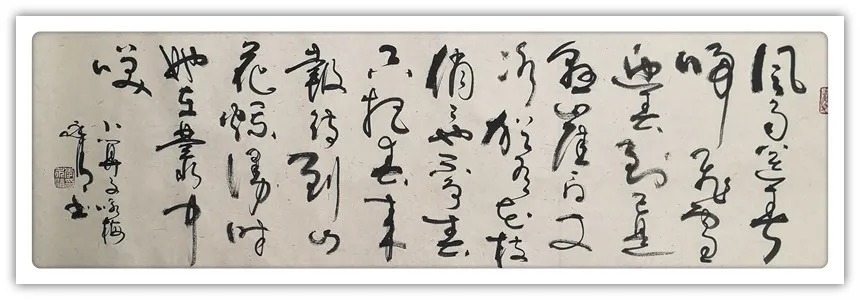 風雨送春
归飛雪
迎春到已是
懸崖百丈
冰犹有花枝
俏俏也不争春
只把春来
報待到山
花爛漫时
她在叢中
咲
卜算子咏梅
书